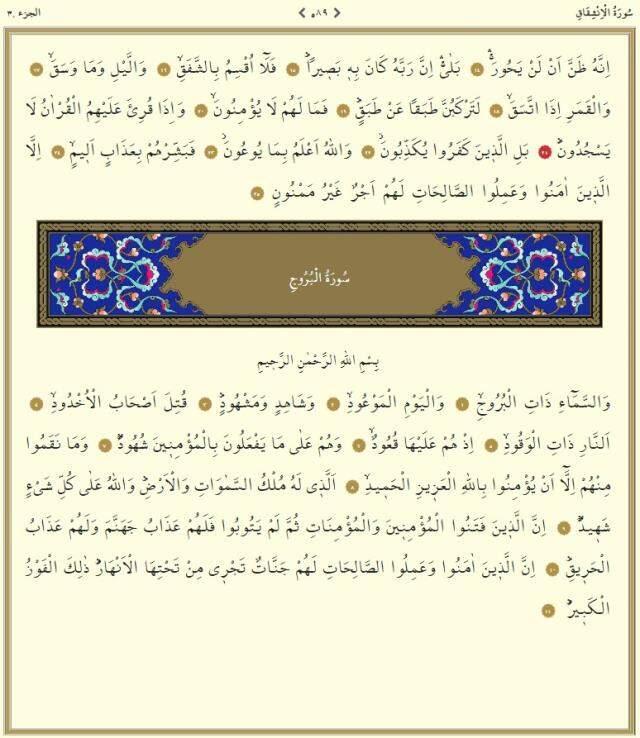 سُورَةُ الْاِنْشِقَاقِ ٥٨٩ الجزء ٣٠
اِنَّهُ ظَنَّ اَنْ لَنْ يَحُورَۚۛ ١٤ بَلٰىۚۛ اِنَّ رَبَّهُ كَانَ بِه۪ بَص۪يرًاۜ ١٥ فَلَٓا اُقْسِمُ بِالشَّفَقِۙ ١٦ وَالَّيْلِ وَمَا وَسَقَۙ ١٧
وَالْقَمَرِ اِذَا اتَّسَقَۙ ١٨ لَتَرْكَبُنَّ طَبَقًا عَنْ طَبَقٍۜ ١٩ فَمَا لَهُمْ لَا يُؤْمِنُونَۙ ٢٠ وَاِذَا قُرِئَ عَلَيْهِمُ الْقُرْاٰنُ لَا
يَسْجُدُونَۜ ٢١ بَلِ الَّذ۪ينَ كَفَرُوا يُكَذِّبُونَۘ ٢٢ وَاللّٰهُ اَعْلَمُ بِمَا يُوعُونَۘ ٢٣ فَبَشِّرْهُمْ بِعَذَابٍ اَل۪يمٍۙ ٢٤ اِلَّا
الَّذ۪ينَ اٰمَنُوا وَعَمِلُوا الصَّالِحَاتِ لَهُمْ اَجْرٌ غَيْرُ مَمْنُونٍ ٢٥
سُورَةُ الْبُرُوجِ
بِسْمِ اللّٰهِ الرَّحْمٰنِ الرَّح۪يمِ
وَالسَّمَٓاءِ ذَاتِ الْبُرُوجِۙ ١ وَالْيَوْمِ الْمَوْعُودِۙ ٢ وَشَاهِدٍ وَمَشْهُودٍۜ ٣ قُتِلَ اَصْحَابُ الْاُخْدُودِۙ ٤
اَلنَّارِ ذَاتِ الْوَقُودِۙ ٥ اِذْ هُمْ عَلَيْهَا قُعُودٌۙ ٦ وَهُمْ عَلٰى مَا يَفْعَلُونَ بِالْمُؤْمِن۪ينَ شُهُودٌۜ ٧ وَمَا نَقَمُوا
مِنْهُمْ اِلَّٓا اَنْ يُؤْمِنُوا بِاللّٰهِ الْعَز۪يزِ الْحَم۪يدِۙ ٨ اَلَّذ۪ي لَهُ مُلْكُ السَّمٰوَاتِ وَالْاَرْضِۜ وَاللّٰهُ عَلٰى كُلِّ شَيْءٍ
شَه۪يدٌۜ ٩ اِنَّ الَّذ۪ينَ فَتَنُوا الْمُؤْمِن۪ينَ وَالْمُؤْمِنَاتِ ثُمَّ لَمْ يَتُوبُوا فَلَهُمْ عَذَابُ جَهَنَّمَ وَلَهُمْ عَذَابُ
الْحَر۪يقِۜ ١٠ اِنَّ الَّذ۪ينَ اٰمَنُوا وَعَمِلُوا الصَّالِحَاتِ لَهُمْ جَنَّاتٌ تَجْر۪ي مِنْ تَحْتِهَا الْاَنْهَارُۜ ذٰلِكَ الْفَوْزُ
الْكَب۪يرُۜ ١١